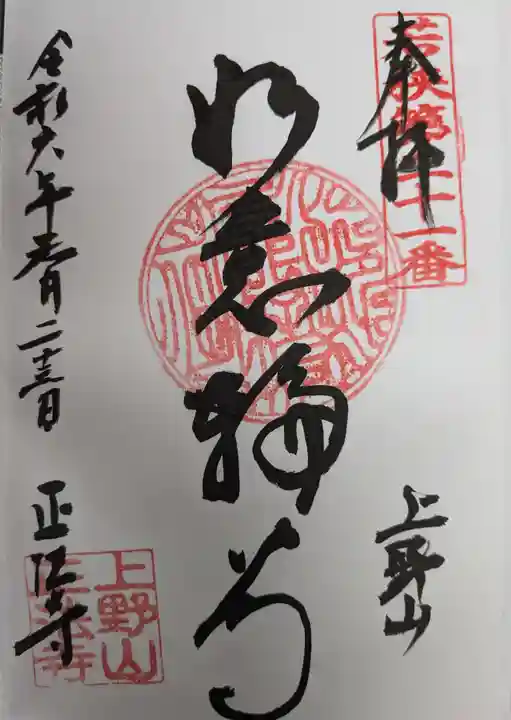 奉拝
若狭第二十一番
上野山
如意輪尊
令和六年参月二十三日
正法寺
上野山
正法寺